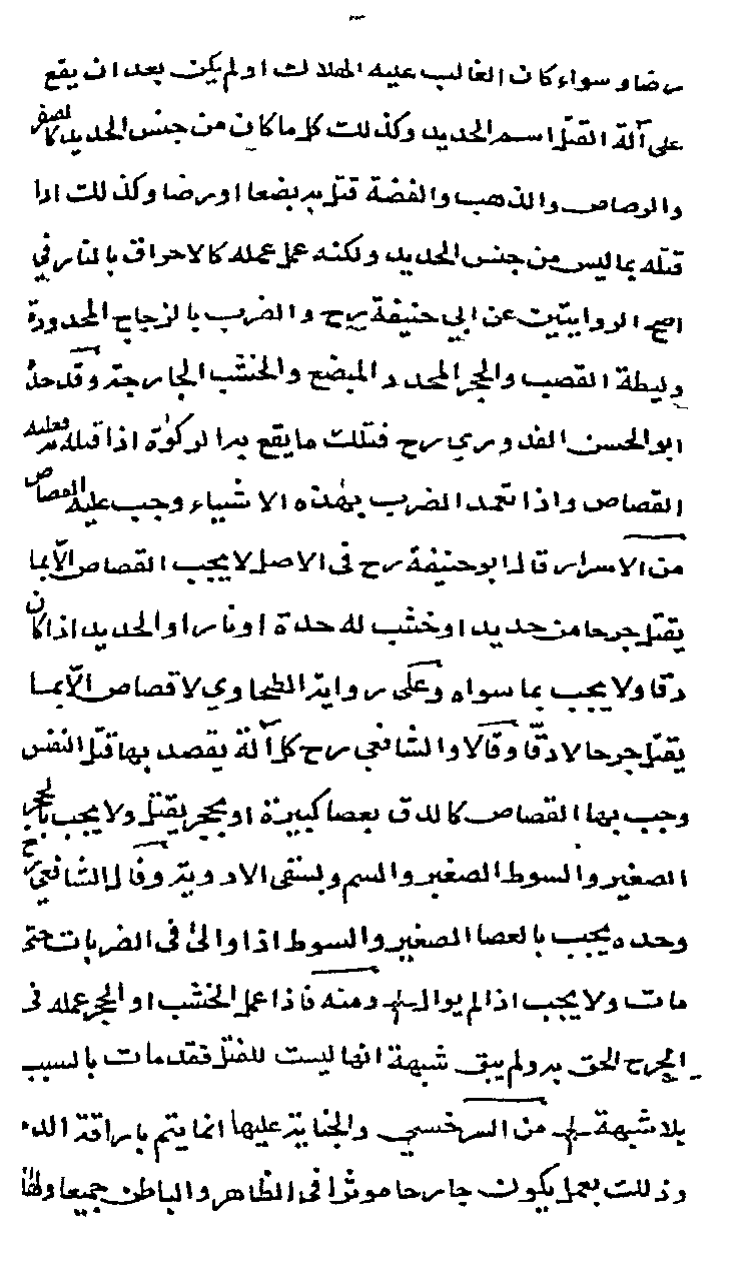 رضا وسواء كان الغالب عليه الهلاك اولم يكن بعد ان يقع
على آلة القتل اسم الحديد وكذلك كل ما كان من جنس الحديد كالصفر
والرصاص والذهب والفضة قتل به بضعا اورضا وكذلك اذا
قتله بما ليس من جنس الحديد ولكنه عمل عمله كالاحراق بالنار في
اصح الروايتين عن ابي حنيفة رح والضرب بالزجاج المحدودة
وليطة القصب والحجر المحدد والمبضع والخشب الجارحة وقد حد
ابو الحسن القدوري رح فتلك ما يقع به الذكوة اذا قتله فعليه
القصاص واذا تعمد الضرب بهذه الاشياء وجب عليه القصاص
من الاسرار قال ابو حنيفة رح فى الاصل لا يجب القصاص الّا بما
يقتل جرحا من حديد او خشب له حدة اونارا والحديد اذا كان
دقا ولا يجب بما سواه وعلى رواية الطحاوي لا قصاص الّا بما
يقتل جرحا لا دقّا وقالا والشافعي رح كل آلة يقصد بها قتل النفس
وجب بها القصاص كالدق بعصا كبيرة او بحجر يقتل ولا يجب بالحجر
الصغير والسوط الصغير والسم وبسقى الادوية وقال الشافعي رح
وحده يجب بالعصا الصغير والسوط اذا والىٰ فى الضربات حتى
مات ولا يجب اذا لم يوال ومنه فاذا عمل الخشب او الحجر عمله فى
الجرح الحق به ولم يبق شبهة انها ليست للقتل فقد مات بالسبب
بلا شبهة من السرخسي والجناية عليها انما يتم باراقة الدم
وذلك بعمل يكون جارحا موثرا فى الظاهر والباطن جميعا ولهٰذا